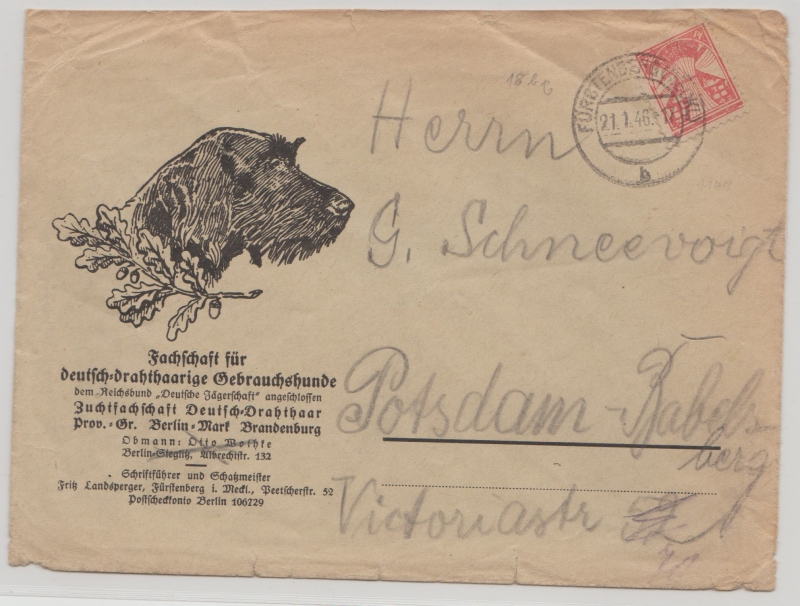 18 b
FÜRSTENBERG
21.1.46.-17
b
Herrn
G. Schneevoigt
Potsdam-Babels-
berg
Victoriastr
Fachschaft für
deutsch-drahthaarige Gebrauchshunde
dem Reichsbund „Deutsche Jägerschaft" angeschlossen
Zuchtfachschaft Deutsch-Drahthaar
Prov.-Gr. Berlin-Mark Brandenburg
Obmann: Otto Wothke
Berlin-Steglitz, Albrechtstr. 132
Schriftführer und Schatzmeister
Fritz Landsperger, Fürstenberg i. Meckl., Peetscherstr. 52
Postscheckkonto Berlin 106729